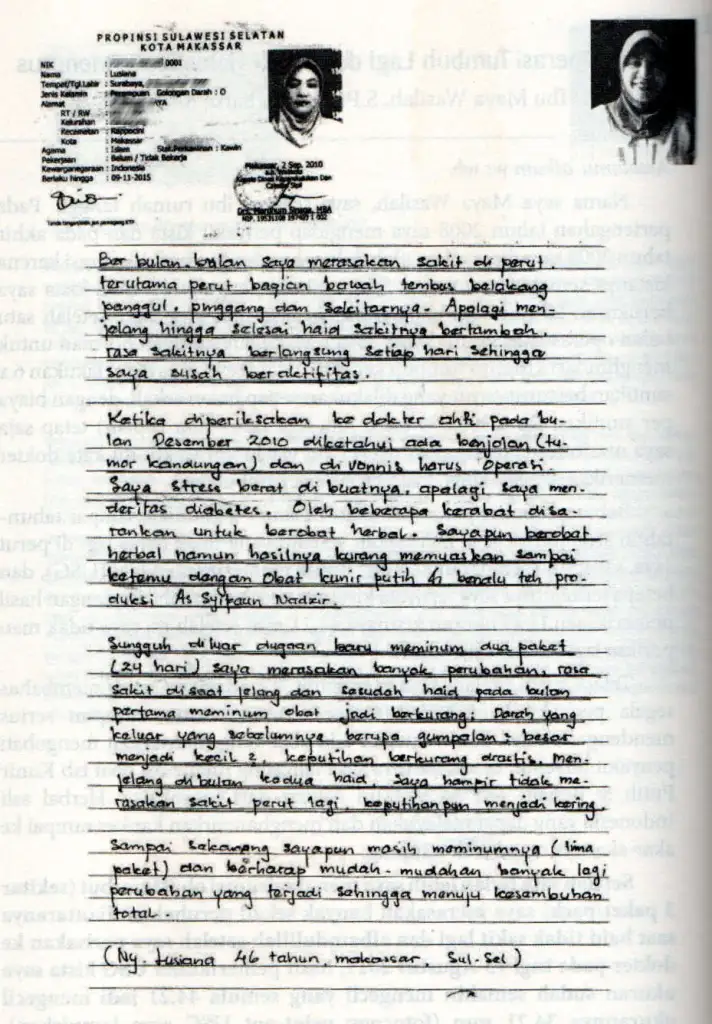 PROPINSI SULAWESI SELATAN
KOTA MAKASSAR
NIK 0001
Nama : Lusiana
Tempat/Tgl.Lahir : Surabaya,
Jenis Kelamin : Perempuan Golongan Darah : O
Alamat
RT / RW
Kelurahan
Kecamatan : Rappocini
Kota : Makassar
Agama : Islam Stat.Perkawinan : Kawin
Pekerjaan : Belum / Tidak Bekerja
Kewarganegaraan : Indonesia
Berlaku hingga : 09-11-2015
Makassar, 2 Sep. 2010
Ber bulan-bulan saya merasakan sakit di perut.
terutama perut bagian bawah tembus belakang
panggul, pinggang dan sekitarnya. Apalagi men-
jelang hingga selesai haid sakitnya bertambah.
rasa sakitnya berlangsung setiap hari sehingga
saya susah ber
Ketika diperiksakan ke dokter ahli pada bu-
lan Desember 2010 diketahui ada benjolan (tu-
mor kandungan) dan di vonnis harus operasi
Saya stress berat di buatnya, apalagi saya men-
deritas diabetes. Oleh beberapa kerabat disa-
rankan untuk berobat herbal. Sayapun berobat
herbal namun hasilnya kurang memuaskan sampai
ketemu dengan Obat kunir putih teh pro-
duksi As Syifaun Nadzir.
Sungguh diluar dugaan baru meminum dua paket
(24 hari) saya merasakan banyak perubahan, rasa
sakit disaat jelang dan sesudah haid pada bulan
pertama meminum obat jadi berkurang. Darah yang
keluar yang sebelumnya berupa gumpalan besar
menjadi kecil 2, keputihan berkurang drastis. Men-
jelang di bulan kedua haid saya benar 2 tidak me-
rasakan sakit perut lagi, keputihanpun menjadi kering.
Sampai sekarang sayapun masih meminumnya (lima
paket) dan berharap mudah-mudahan banyak lagi
perubahan yang terjadi sehingga menuju kesembuhan
total.
(Ny. Lusiana 46 tahun, makassar. Sul-Sel)